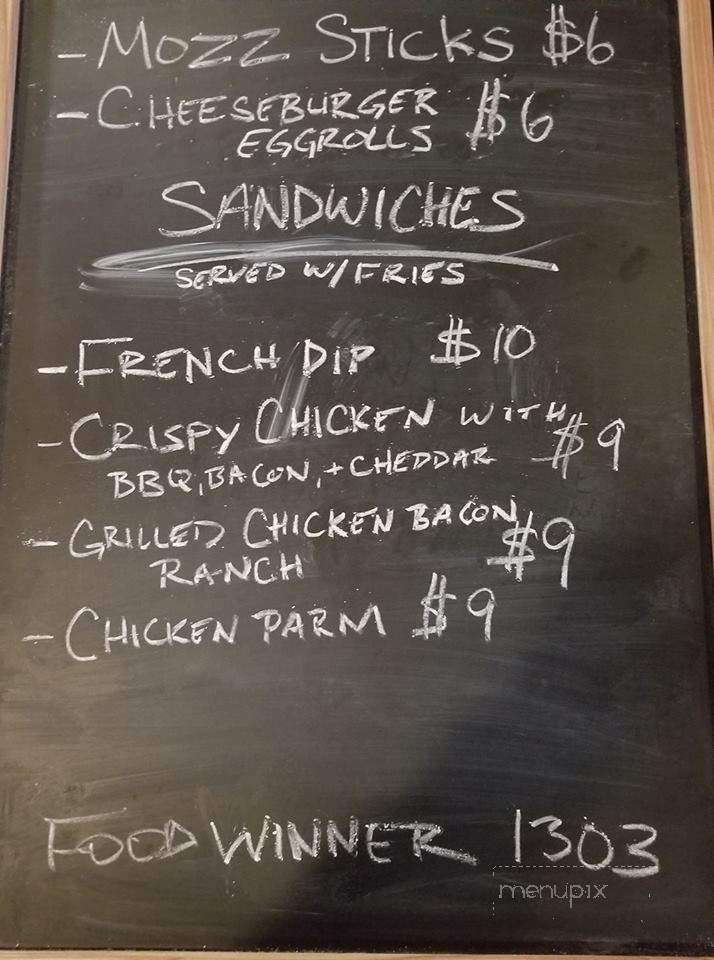 - MOZZ STICKS $6
- CHEESEBURGER $6
EGGROLLS
SANDWICHES
SERVED W/FRIES
- FRENCH DIP $10
- CRISPY CHICKEN WITH $9
BBQ, BACON, + CHEDDAR
- GRILLED CHICKEN BACON $9
RANCH
- CHICKEN PARM $9
FOOD WINNER 1303
menupix